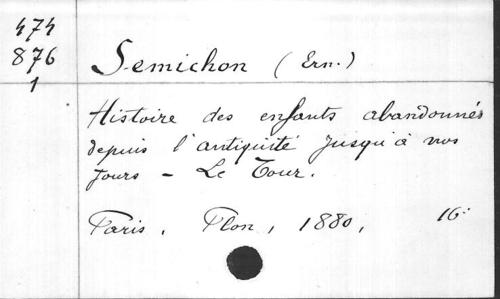 474
876
1
Semichon (Ern.)
Histoire des enfants abandonnés
depuis l'antiquité jusqu'à nos
jours - Le Tour.
Paris. Plon, 1880, 16: